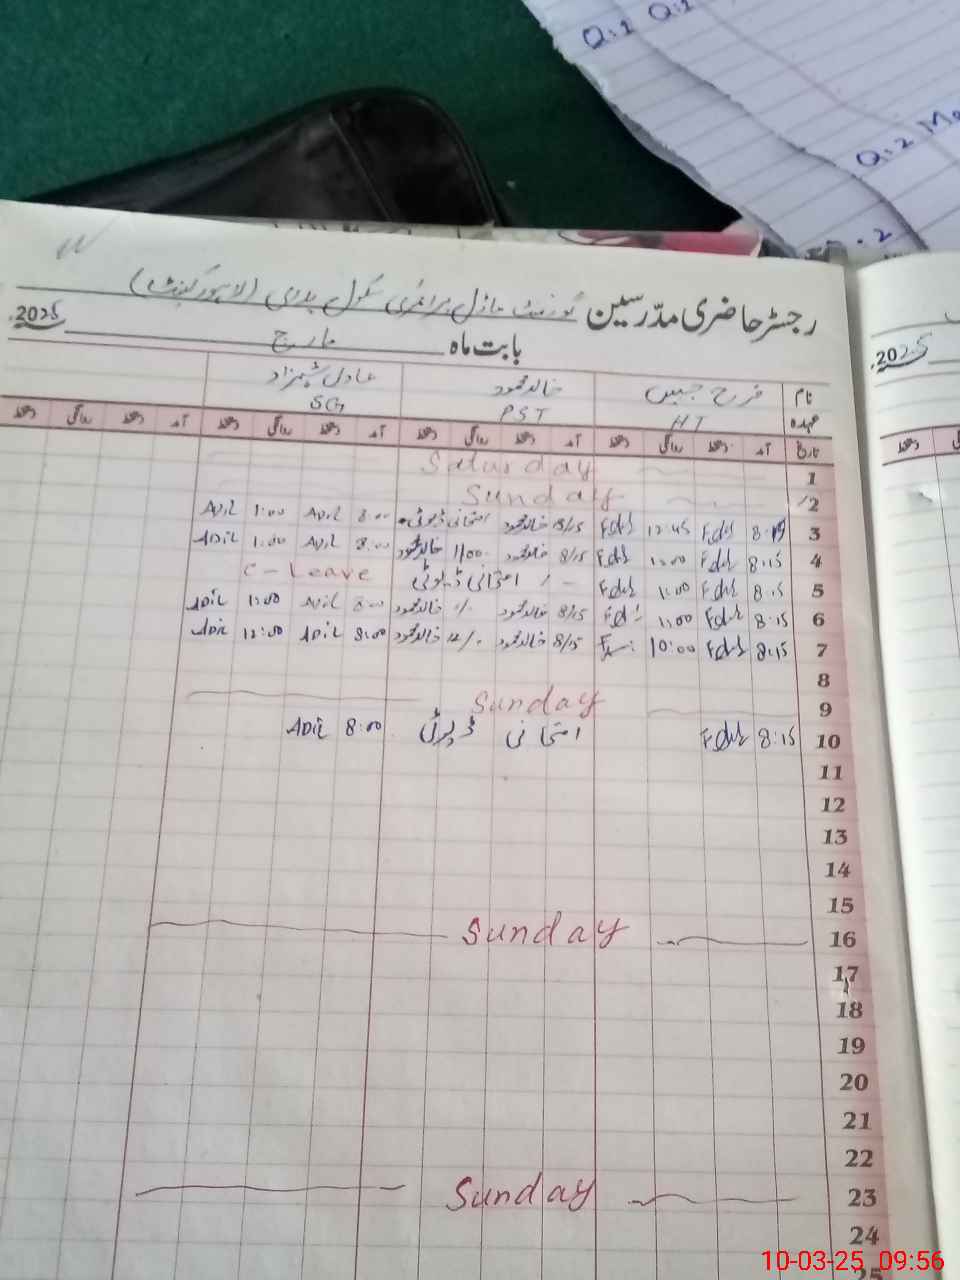 Q:1 Q:1
Q:2
رجسٹر حاضری مدرسین گورنمنٹ ماڈل پرائمری سکول (لاہور کینٹ)
بابت ماہ مارچ 2025
2025
نام فرح جبیں خالد محمود عادل شہزاد
عہدہ HT PST SG
تاریخ آمد دستخط روانگی دستخط آمد دستخط روانگی دستخط آمد دستخط روانگی دستخط آمد دستخط روانگی دستخط
1 Saturday
2 Sunday
3 8:15 12:45 8/15 خالد محمود امتحانی ڈیوٹی 8:00 Adil 1:00 Adil
4 8:15 8/15 خالد محمود 1/00 خالد محمود 8:00 Adil 1:00 Adil
5 8:15 1:00 امتحانی ڈیوٹی C-Leave
6 8:15 1:00 8/15 خالد محمود 1/- خالد محمود 8:00 Adil 1:00 Adil
7 8:15 10:00 8/15 خالد محمود 12/- خالد محمود 8:00 Adil 12:00 Adil
8
9 Sunday
10 8:15 امتحانی ڈیوٹی 8:00 Adil
11
12
13
14
15
16 Sunday
17
18
19
20
21
22
23 Sunday
24
25
10-03-25 09:56